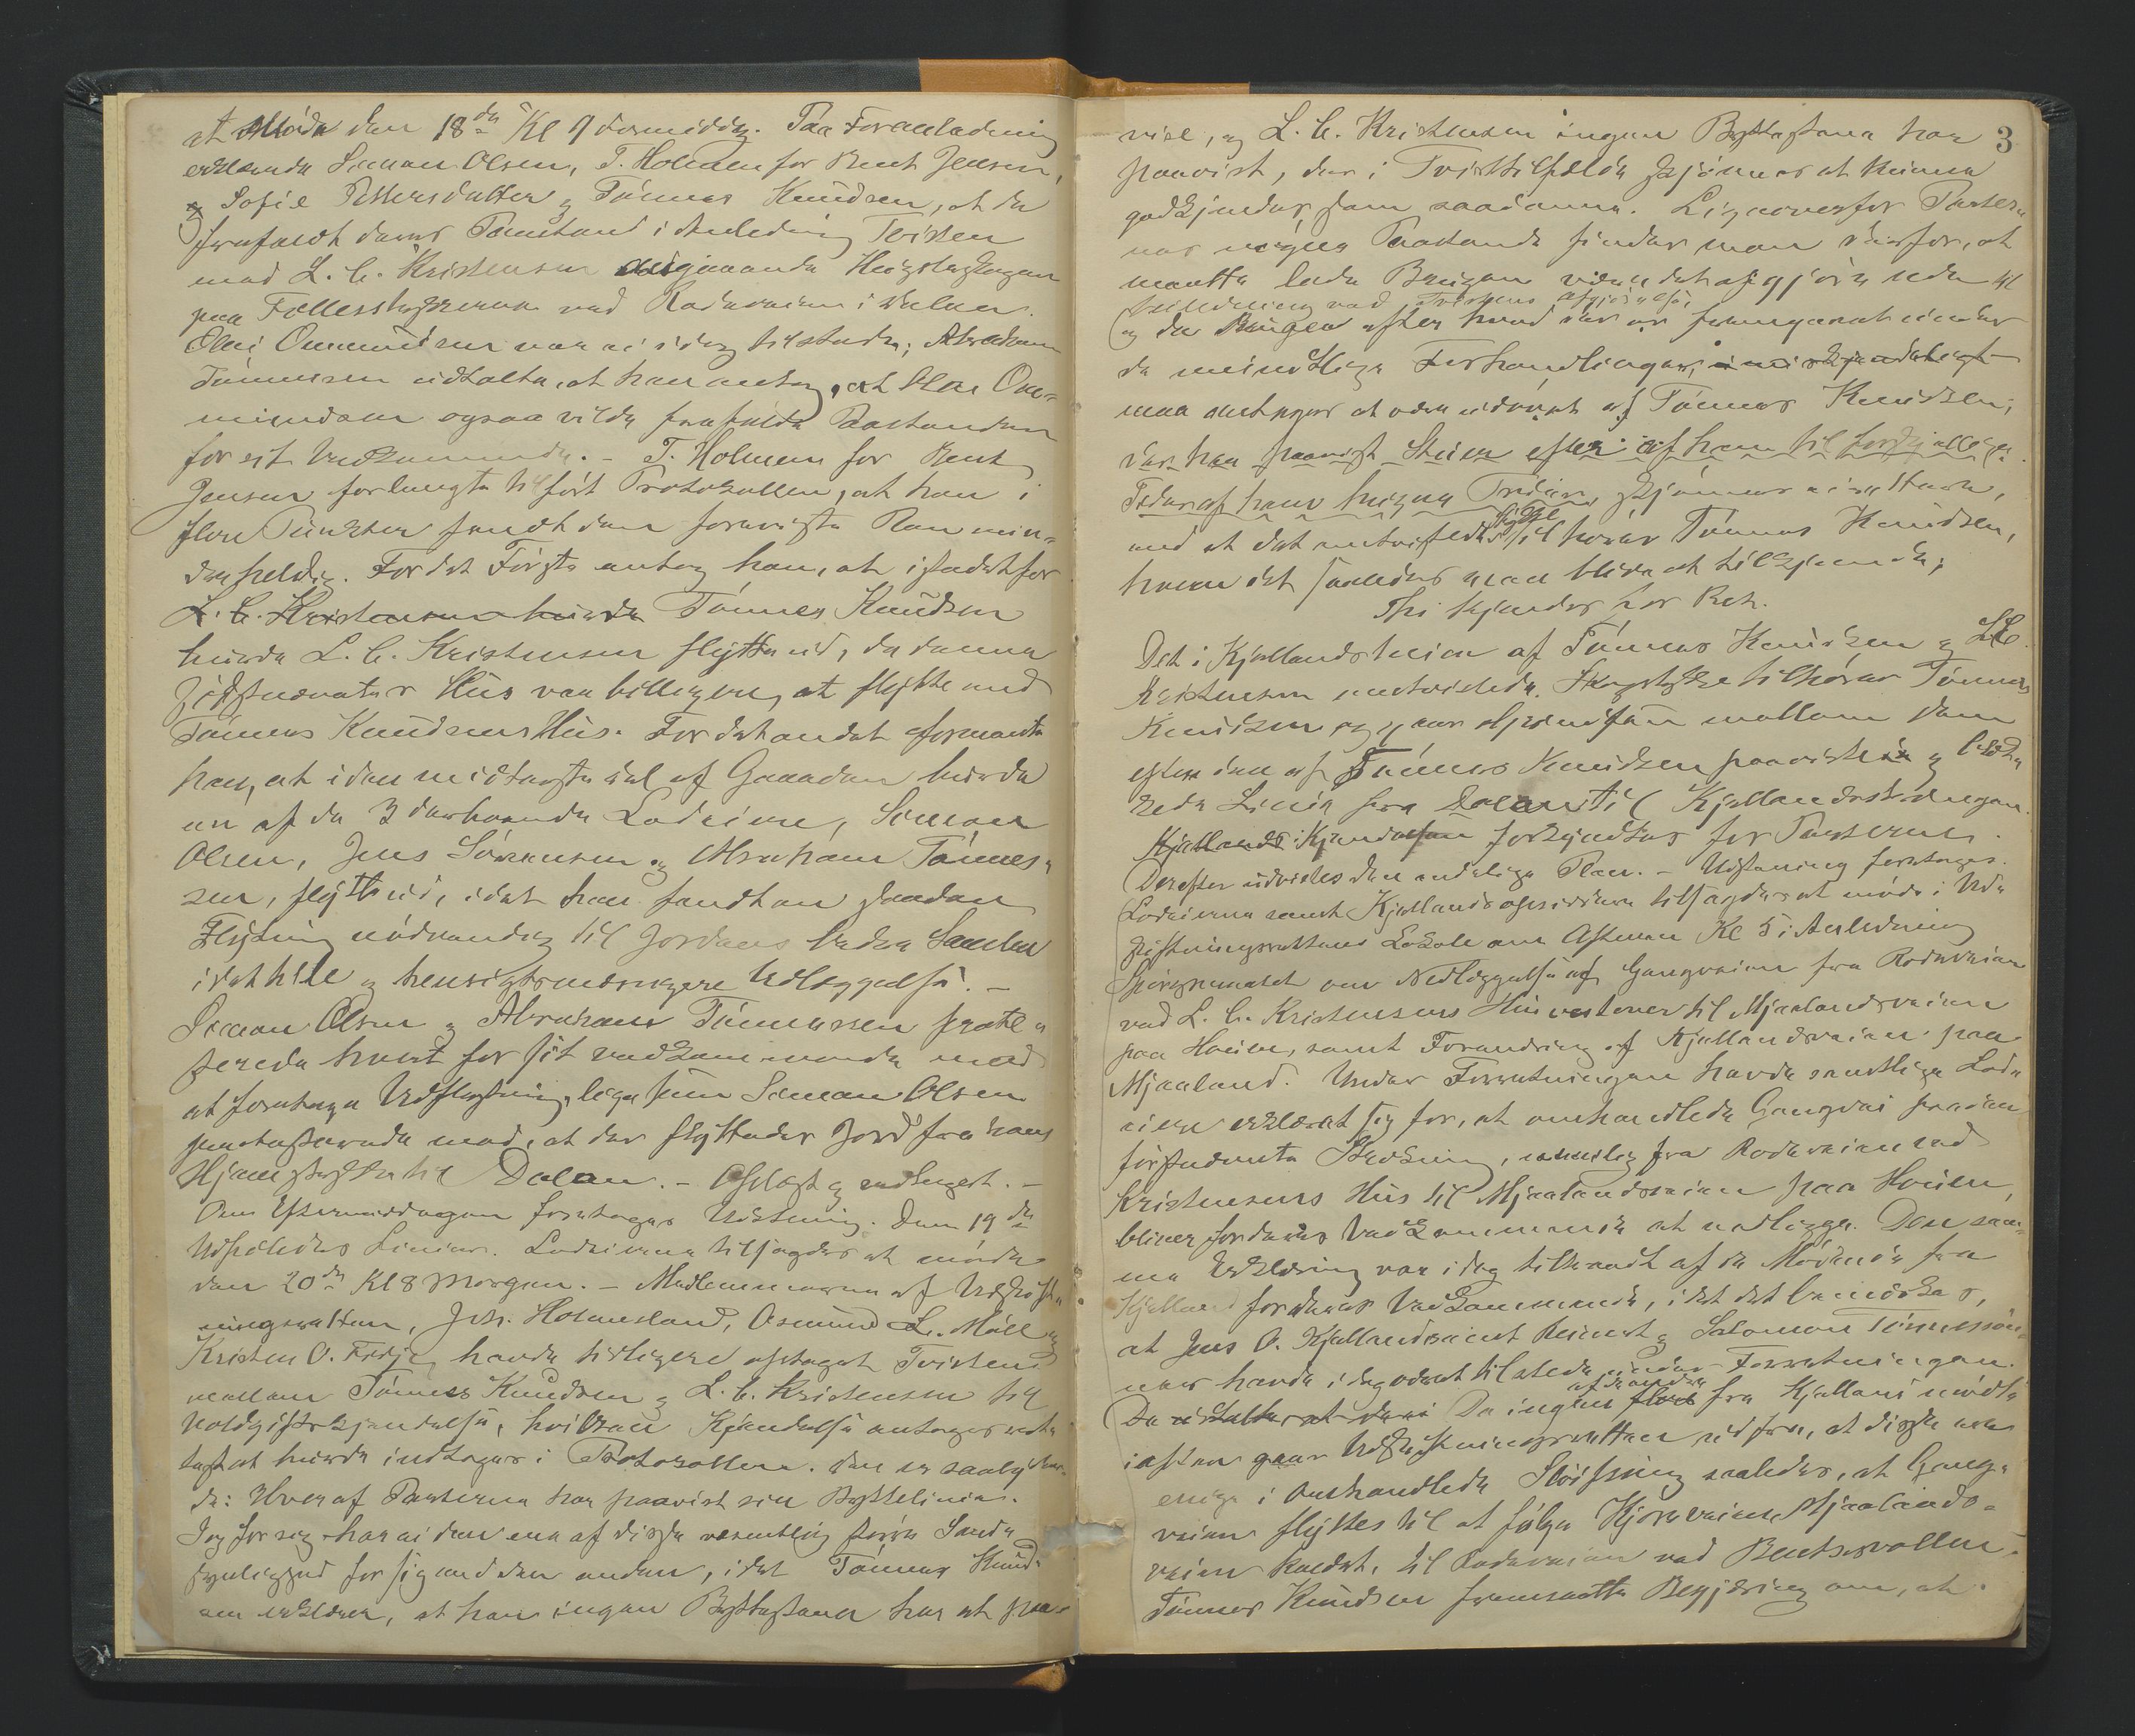 at Møde den 18de Kl 9 Formiddag. Paa Foranledning
erklærede Simon Olsen, T. Holmen for Bent Jensen,
og Sofie Pettersdatter og Tønnes Knudsen, at de
frafaldt deres Paastand i Anledning Tvisten
med L. C. Kristensen angaaende Hugsten
paa Fællesstykkerne ved Rodeveien i Dalen.
Omundsen var ei idag tilstede; Abraham
Tønnesen udtalte, at han antog, at Ole Om-
mundsen ogsaa vilde frafalde Paastanden
for sit Vedkommende. – T. Holmen for Bent
Jensen forlangte tilført Protokollen, at han i
flere Punkter fandt den foreviste Plan min-
dre heldig. For det Første antog han, at istedetfor
L. C. Kristensen burde Tønnes Knudsen
burde L. C. Kristensen flytte ud, da denne
sidstnævntes Hus var billigere at flytte end
Tønnes Knudsens Hus. For det andet formente
han, at i den midterste Del af Gaarden burde
en af de 3 derboende Lodeiere, Simon
Olsen, Jens Sørensen og Abraham Tønnes-
sen, flytte ud, idet han fandt en saadan
Flytning nødvendig til Jordens bedre Samling
i det hele og hensigtsmæssigere Udlæggelse. –
Simon Olsen og Abraham Tønnessen prote-
sterede hver for sit Vedkommende mod
at foretage Udflytning, ligesom Simon Olsen
protesterede mod, at der flyttedes Jord fra hans
Hjemstykke til Dalen. – Oplæst og vedtaget. –
Om Eftermiddagen foretages Udstikning. Den 19de
Udstikkedes Linier. Lodeierne tilsagdes at møde
den 20de Kl 8 Morgen. – Medlemmerne af Udskift-
ningsretten, Joh. Holmesland, Osmund L. Møll og
Kristen O. Fidje havde tidligere optaget Tvisten
mellem Tønnes Knudsen og L. C. Kristensen til
Voldgiftskjendelse, hvilken Kjendelse antages rette-
st at burde indtages i Protokollen. Den er saaly-
de: Hver af Parterne har paavist sin Byttelinie.
Jeg for sig har ei den ene af disse væsentlig større Sand-
synlighed for sig end den anden, idet Tønnes Knud-
sen erklærer, at han ingen Byttestene har at paa-
vise, og L. C. Kristensen ingen Byttestene har 3
paavist, der i Tvisttilfælde skjønnes at kunne
godkjendes som saadanne. Ligeoverfor Parter-
nes Paastande finder man derfor, at
maatte lade Brugen være det afgjørende til
Veiledning ved Tvistens Afgjørelse,
og da Brugen efter hvad der er fremgaaet under
de mundtlige Forhandlinger,
maa antages at være udøvet af Tønnes Knudsen,
der har paavist Stuer efter af ham til forskjellige
Tider af ham hugne Træer, skjønnes ei rettere,
end at det omtvistede Stykke tilhører Tønnes Knudsen,
hvem det saaledes maa blive at tilkjende;
Thi kjendes for Ret.
Det i Kjellandsheien af Tønnes Knudsen og L. C.
Kristensen omtvistede Skogstykke tilhører Tønnes
Knudsen og gaar Skjellet mellem dem
efter den af Tønnes Knudsen paaviste og
Linie fra Dalen til Kjellands
Kjendelsen forkyndtes for Parterne.
Derefter udvistes den endelige Plan. – Udstikning foretages.
Lodeierne samt Kjellands opsiddere tilsagdes at møde i Ud-
skiftningsrettens Lokale om Aftenen Kl 5 i Anledning
Spørgsmaalet om Nedlæggelse af Gangveien fra Rodeveien
ved L. C. Kristensens Hus vestover til Mjaalandsveien
paa Heien, samt Forandring af Kjellandsveien paa
Mjaaland. Under Forretningen havde samtlige Lod-
eiere erklæret sig for, at omhandlede Gangvei paa den
førstnævnte Strækning, nemlig fra Rodeveien ved
Kristensens Hus til Mjaalandsveien paa Heien,
bliver for deres Vedkommende at nedlægge. Den sam-
me Erklæring var idag tiltraadt af de Mødende fra
Kjelland for deres Vedkommende, idet det bemærkes,
at Jens O. Kjelland samt Reinert og Salomon Tønnessøn-
ner havde idag været tilstede under Forretningen.
Da ingen af de andre fra Kjelland mødte
iaften gaar Udskiftningsretten ud fra, at disse ere
enige i omhandlede Sløifning saaledes, at Gang-
veien flyttes til at følge Kjøreveien, Mjaalands-
veien kaldet, til Rodeveien ved Bentsvollen.
Tønnes Knudsen fremsatte Begjæring om, at